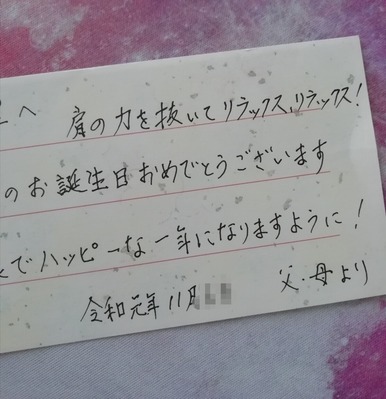 へ 肩の力を抜いてリラックス、リラックス!
のお誕生日おめでとうございます
でハッピーな一年になりますように!
令和元年11月
父・母より